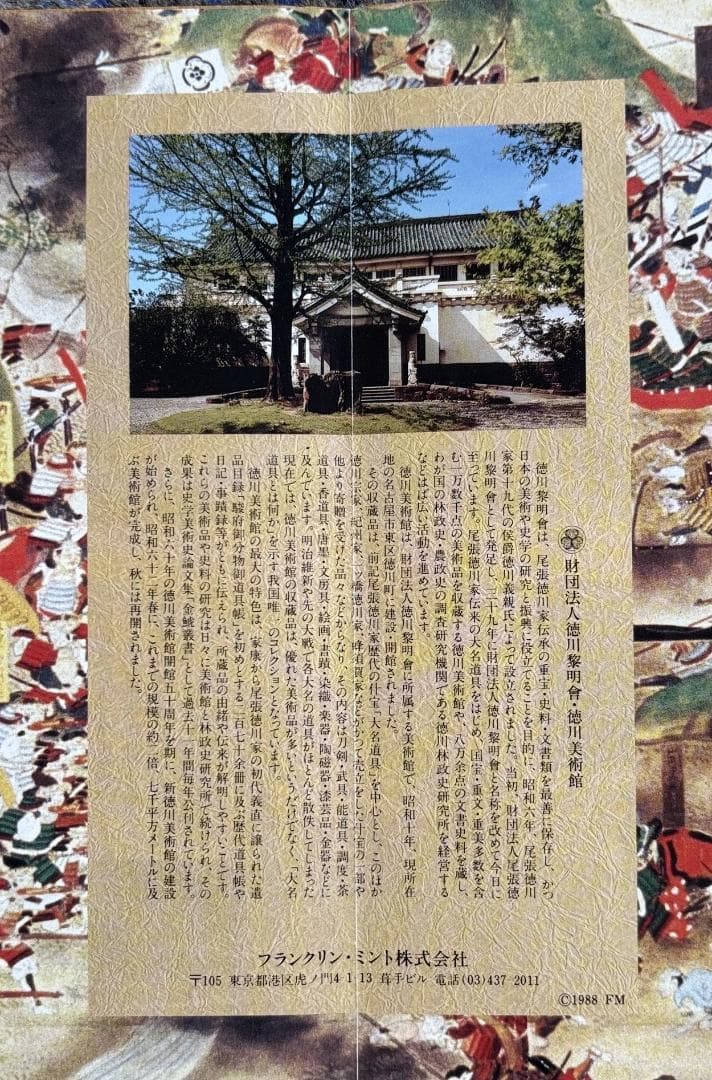 財団法人徳川黎明會・徳川美術館
徳川黎明會は、尾張徳川家伝承の重宝・史料・文書類を最善に保存し、かつ
日本の美術や史学の研究と振興に役立てることを目的に、昭和六年、尾張徳川
家第十九代の侯爵徳川義親氏によって設立されました。当初、財団法人尾張徳
川黎明會として発足し、三十九年に財団法人徳川黎明會と名称を改めて今日に
至っています。尾張徳川家伝来の大名道具をはじめ、国宝・重文・重美多数を含
む一万数千点の美術品を収蔵する徳川美術館や、八万余点の文書史料を蔵し、
わが国の林政史・農政史の調査研究機関である徳川林政史研究所を経営する
などはば広い活動を進めています。
徳川美術館は、財団法人徳川黎明會に所属する美術館で、昭和十年、現所在
地の名古屋市東区徳川町に建設・開館されました。
その収蔵品は、前記尾張徳川家歴代の什宝「大名道具」を中心とし、このほか
徳川宗家、紀州家、一ツ橋徳川家、蜂須賀家などがかつて売立をした什宝の一部や
他より寄贈を受けた品々などからなり、その内容は刀剣・武具・能道具・調度・茶
道具・香道具・唐墨・文房具・絵画・書蹟・染織・楽器・陶磁器・漆芸品・金器などに
及んでいます。明治維新や先の大戦で各大名の道具がほとんど散佚してしまった
現在では、徳川美術館の収蔵品は、優れた美術品が多いというだけでなく、「大名
道具とは何か」を示す我国唯一のコレクションとなっています。
徳川美術館の最大の特色は、家康から尾張徳川家の初代義直に譲られた遺
品目録「駿府御分物御道具帳」を初めとする二百七十余冊に及ぶ歴代道具帳や
日記・事蹟録等がともに伝えられ、所蔵品の由緒や伝来が解明しやすいことです。
これらの美術品や史料の研究は日々に美術館と林政史研究所で続けられ、その
成果は史学美術史論文集「金鯱叢書」として過去十一年間毎年公刊されています。
さらに、昭和六十年の徳川美術館開館五十周年を期に、新徳川美術館の建設
が始められ、昭和六十二年春に、これまでの規模の約二倍、七千平方メートルに及
ぶ美術館が完成し、秋には再開されました。
フランクリン・ミント株式会社
〒105 東京都港区虎ノ門4-1-13 葺手ビル 電話(03)437-2011
©1988 FM